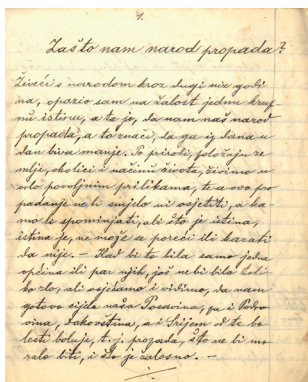 1.
Zašto nam narod propada?
Živeći s narodom kroz dugi niz godi
na, opazio sam na žalost jednu krup
nu istinu, a ta je, da nam naš narod
propada, a to znači, da ga iz dana u
dan biva manje. Po prirodi, položaju ze
mlje, okolici i načinu života, živimo u
vrlo povoljnim prilikama, te se ovo pro
padanje ne bi smjelo ni osjetiti, a ka
mo li spominjati, ali što je istina,
istina je, ne može se poreći ili kazati
da nije. — Kad bi to bila samo jedna
općina ili par njih, još ne bi bilo toli
ko zlo, ali osjećamo i vidimo, da nam
gotovo cijela naša Posavina, pa i Podra
vina, Đakovština, a i Srijem od te bo
lesti boluje, t. j. propada, što ne bi mo
ralo biti, i što je žalosno. —